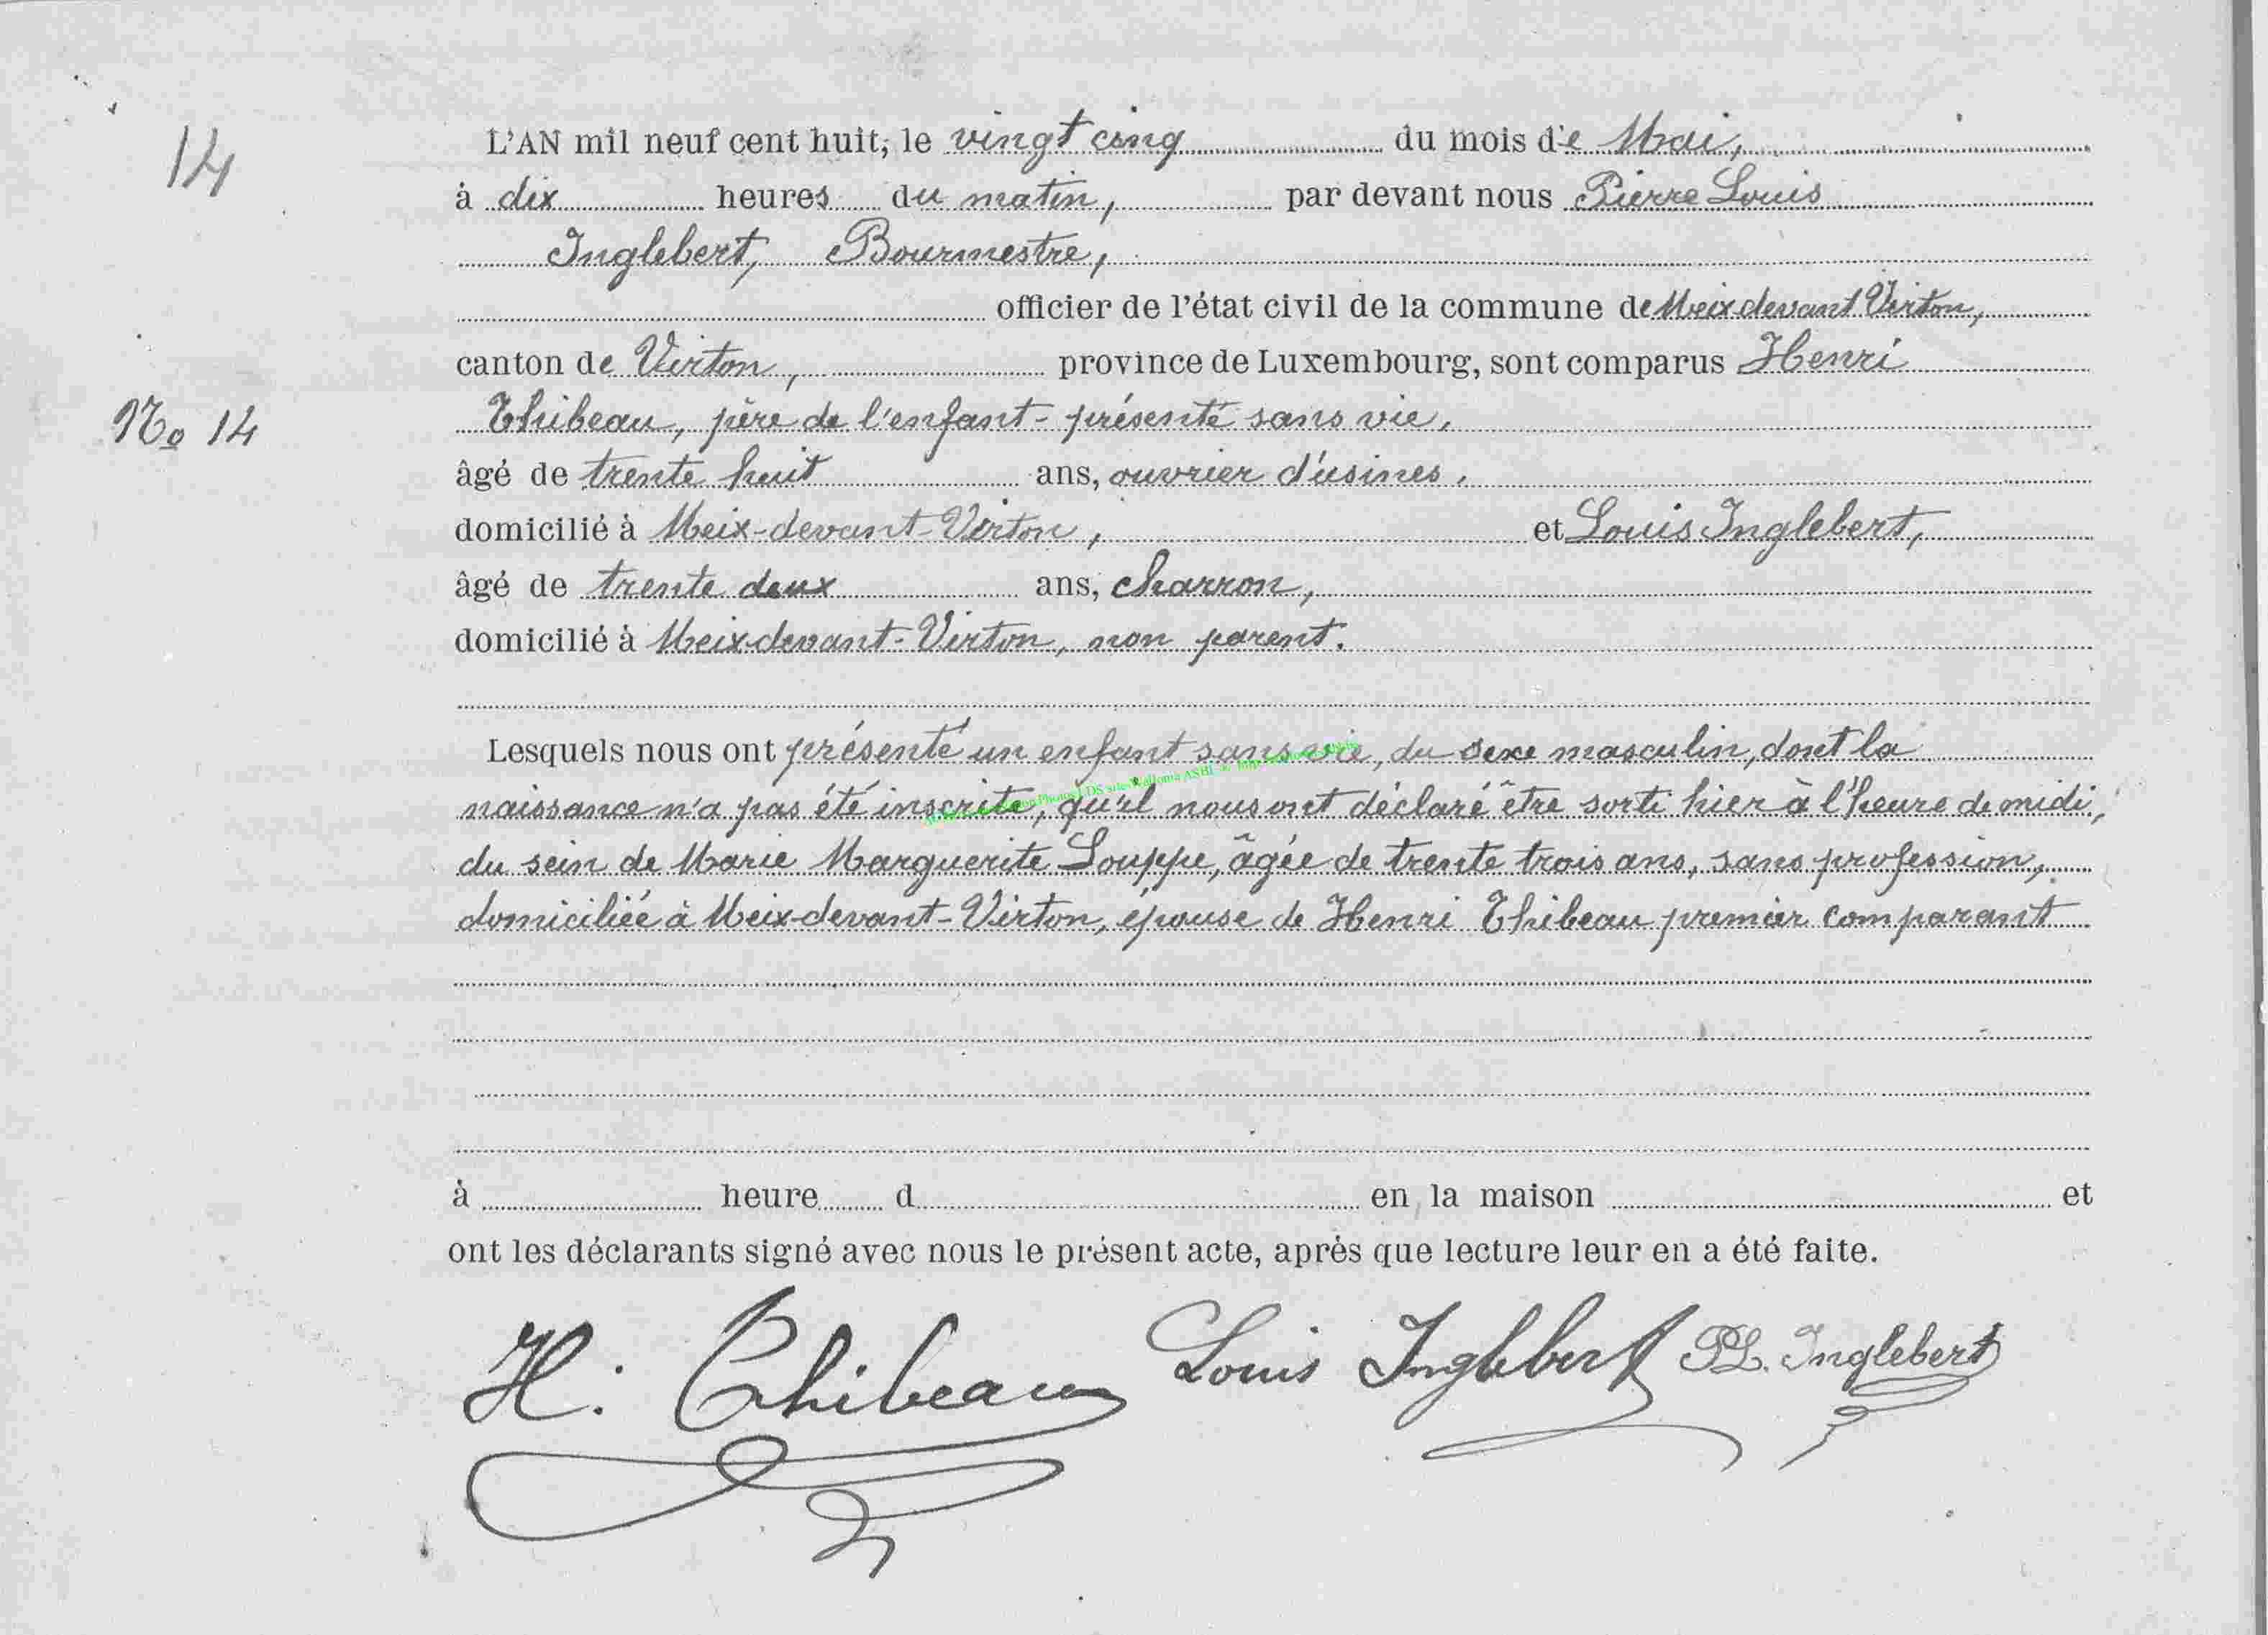 14
L'AN mil neuf cent huit, le vingt cinq du mois de Mai,
à dix heures du matin, par devant nous Pierre Louis
Inglebert, Bourmestre,
officier de l'état civil de la commune de Meix devant Virton,
canton de Virton, province de Luxembourg, sont comparus Henri
No 14
Thibeau, père de l'enfant présenté sans vie,
âgé de trente huit ans, ouvrier d'usines,
domicilié à Meix-devant-Virton, et Louis Inglebert,
âgé de trente deux ans, charron,
domicilié à Meix devant-Virton, non parent.
Lesquels nous ont présenté un enfant sans vie, du sexe masculin, dont la
naissance n'a pas été inscrite, qu'il nous ont déclaré être sorti hier à l'heure de midi,
du sein de Marie Marguerite Louppe, âgée de trente trois ans, sans profession,
domiciliée à Meix-devant-Virton, épouse de Henri Thibeau premier comparant
à heure d en la maison et
ont les déclarants signé avec nous le présent acte, après que lecture leur en a été faite.
H. Thibeau Louis Inglebert PL. Inglebert